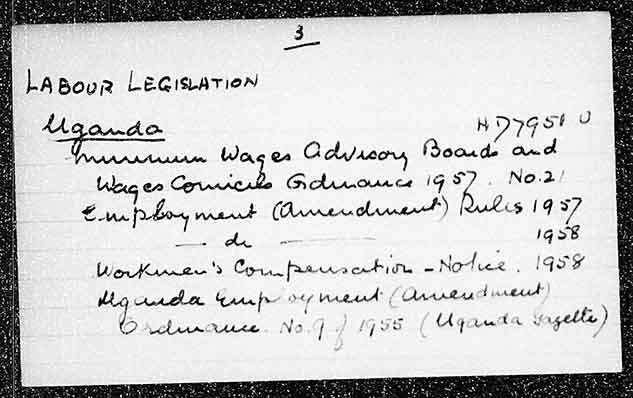 3
LABOUR LEGISLATION
Uganda HD7951 U
Minimum Wages Advisory Boards and
Wages Councils Ordinance 1957. No.21
Employment (Amendment) Rules 1957
— do — 1958
Workmen's Compensation - Notice. 1958
Uganda Employment (Amendment)
Ordinance No.9 of 1955 (Uganda Gazette)